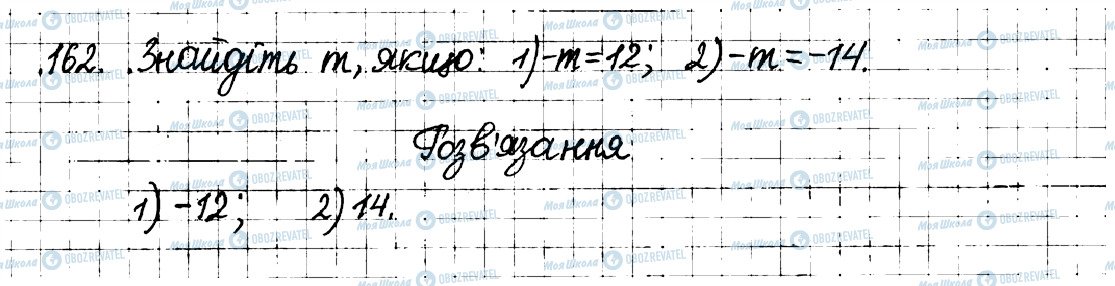 162. Знайдіть m, якщо: 1) -m = 12; 2) -m = -14.
Розв'язання
1) -12; 2) 14.